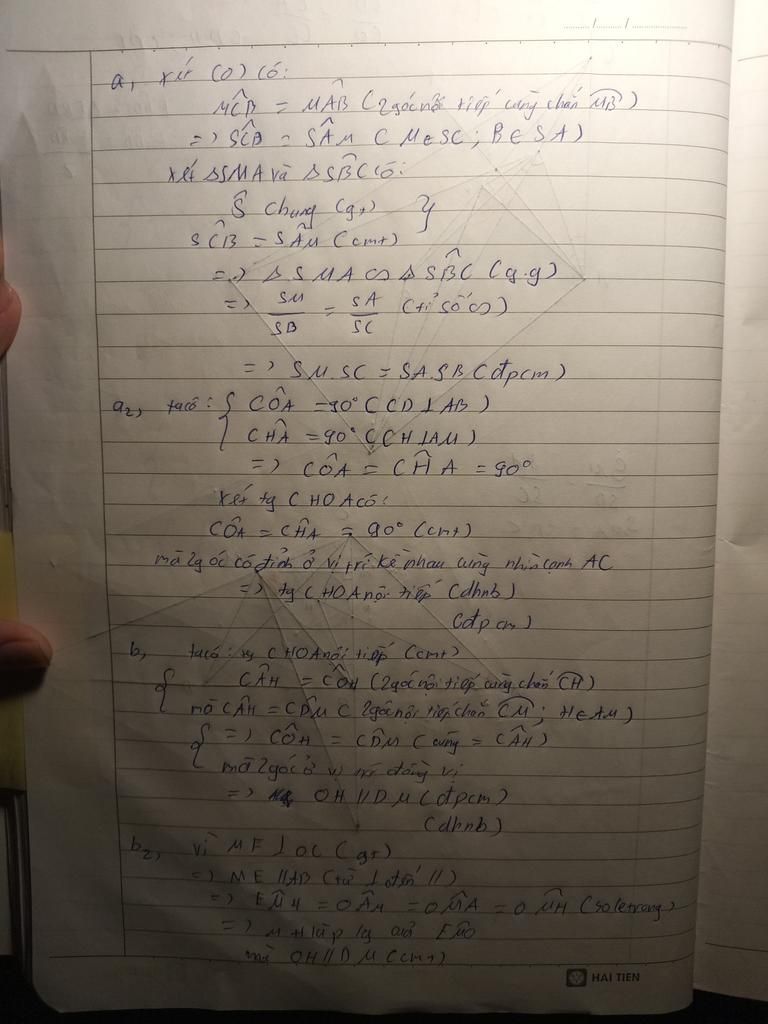 a, xét (O) có:
MĈB = MÂB (2 góc nội tiếp cùng chắn MB)
=> SĈB = SÂM ( M∈SC; B∈SA)
Xét ΔSMA và ΔSBC có:
Ŝ chung (gt) }
SĈB = SÂM (cmt)
=> ΔSMA ∽ ΔSBC (g.g)
=> SM/SB = SA/SC (tỉ số ∽)
=> SM.SC = SA.SB (đpcm)
a2, ta có: { CÔA = 90° (CD⊥AB)
CĤA = 90° (CH⊥AM)
=> CÔA = CĤA = 90°
xét tg CHOA có:
CÔA = CĤA = 90° (cmt)
mà 2 góc có đỉnh ở vị trí kề nhau cùng nhìn cạnh AC
=> tg CHOA nội tiếp (dhnb)
(đpcm)
b, ta có: tg CHOA nội tiếp (cmt)
{ CÂH = CÔH (2 góc nội tiếp cùng chắn CH)
mà CÂH = CDM ( 2 góc nội tiếp chắn CM; H∈AM)
{ => CÔH = CDM (cùng = CÂH)
mà 2 góc ở vị trí đồng vị
=> OH // DM (đpcm)
(dhnb)
b2, vì ME ⊥ OC (gt)
=> ME // AB (từ ⊥ đến //)
=> EMH = OÂM = OMA = OMH (so le trong)
=> MH là p/g của EMO
mà OH // DM (cmt)
HAI TIEN